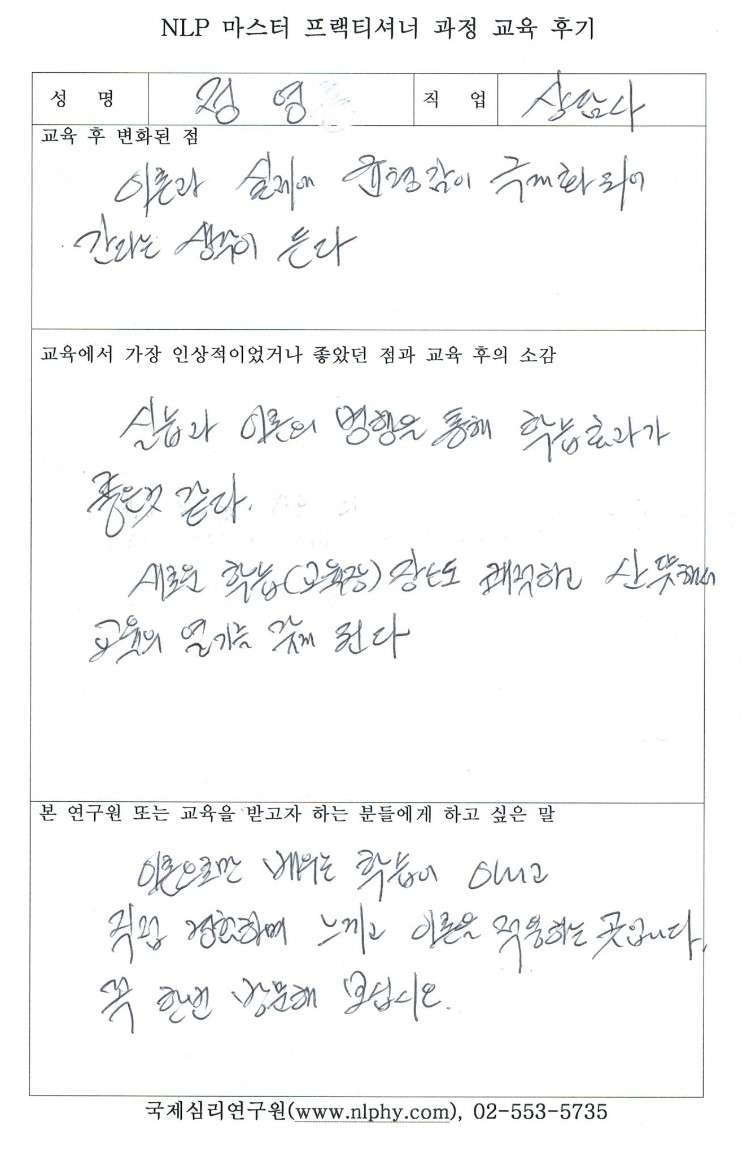 NLP 마스터 프랙티셔너 과정 교육 후기
성 명 정 영 직 업 상담사
교육 후 변화된 점
이론과 실제에 균형감이 극대화 되어
간다는 생각이 든다
교육에서 가장 인상적이었거나 좋았던 점과 교육 후의 소감
실습과 이론의 병행을 통해 학습효과가
좋은것 같다.
새로운 학습(교육장) 장소도 쾌적하고 산뜻해서
교육의 열기를 갖게 된다
본 연구원 또는 교육을 받고자 하는 분들에게 하고 싶은 말
이론으로만 배우는 학습이 아니고
직접 경험하며 느끼고 이론을 적용하는 곳입니다.
꼭 한번 방문해 보십시오.
국제심리연구원(www.nlphy.com), 02-553-5735